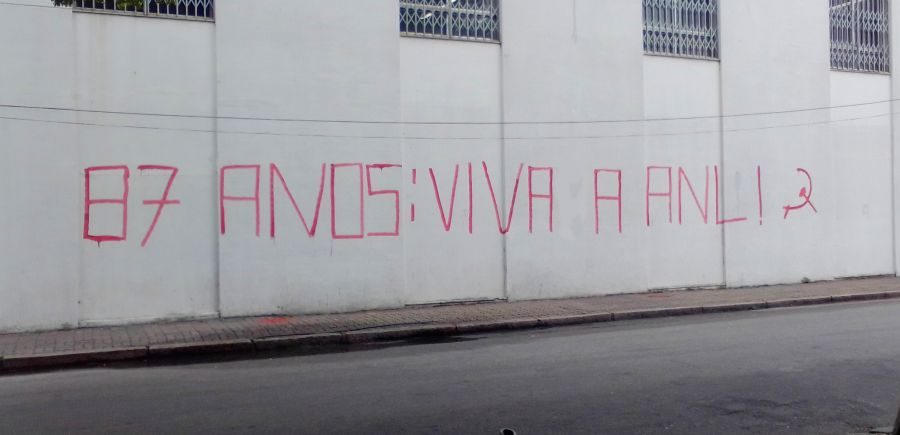 87 ANOS: VIVA A ANL! ☭